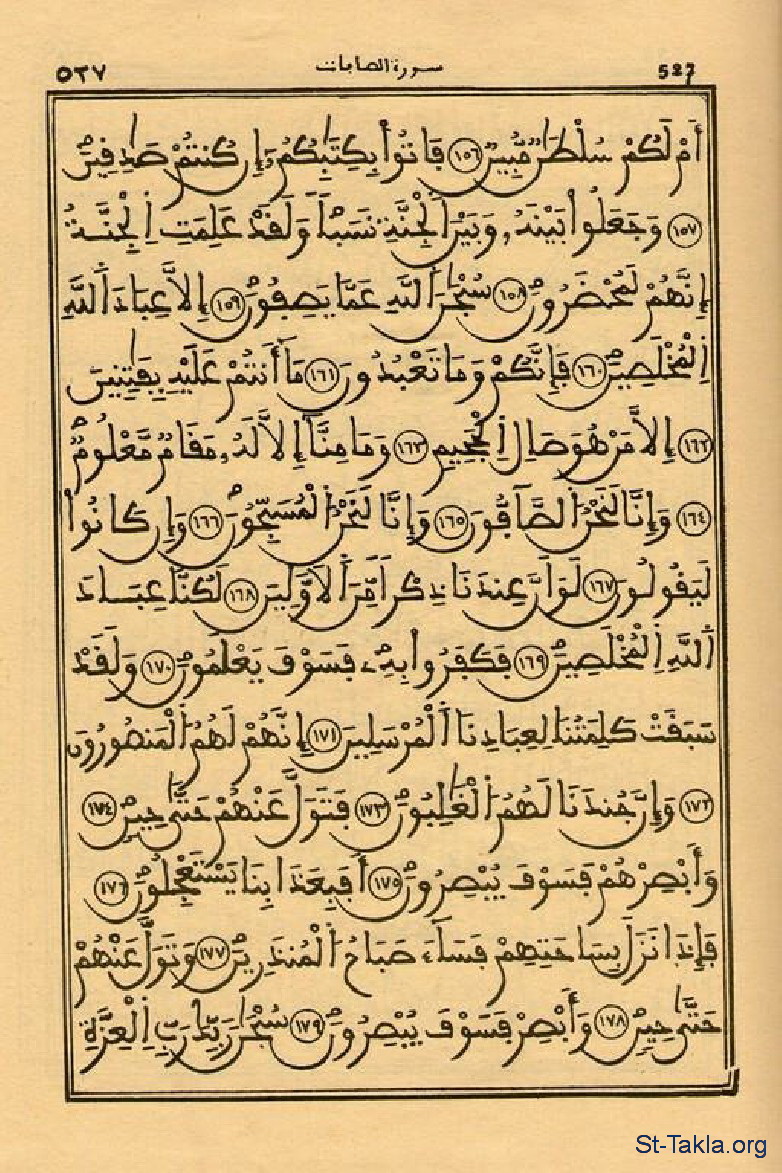 ٥٢٧ سورة الصافات 527
أَمْ لَكُمْ سُلْطَٰنٌ مُّبِينٌ ١٥٦ فَاتُواْ بِكِتَٰبِكُمُ إِن كُنتُمْ صَٰدِقِينَ
١٥٧ وَجَعَلُواْ بَيْنَهُ وَبَيْنَ اَلْجِنَّةِ نَسَباً وَلَقَدْ عَلِمَتِ اِلْجِنَّةُ
إِنَّهُمْ لَمُحْضَرُونَ ١٥٨ سُبْحَٰنَ اَللَّهِ عَمَّا يَصِفُونَ ١٥٩ إِلاَّ عِبَادَ اَللَّهِ
اِلْمُخْلَصِينَ ١٦٠ فَإِنَّكُمْ وَمَا تَعْبُدُونَ ١٦١ مَا أَنتُمْ عَلَيْهِ بِفَٰتِنِينَ
١٦٢ إِلاَّ مَنْ هُوَ صَالِ اِلْجَحِيمِ ١٦٣ وَمَا مِنَّا إِلاَّ لَهُ مَقَامٌ مَّعْلُومٌ
١٦٤ وَإِنَّا لَنَحْنُ اُلصَّآفُّونَ ١٦٥ وَإِنَّا لَنَحْنُ اُلْمُسَبِّحُونَ ١٦٦ وَإِن كَانُواْ
لَيَقُولُونَ ١٦٧ لَوَ اَنَّ عِندَنَا ذِكْراً مِّنَ اَلاَوَّلِينَ ١٦٨ لَكُنَّا عِبَادَ
اَللَّهِ اِلْمُخْلَصِينَ ١٦٩ فَكَفَرُواْ بِهِ فَسَوْفَ يَعْلَمُونَ ١٧٠ وَلَقَدْ
سَبَقَتْ كَلِمَتُنَا لِعِبَادِنَا اَلْمُرْسَلِينَ ١٧١ إِنَّهُمْ لَهُمُ اُلْمَنصُورُونَ
١٧٢ وَإِنَّ جُندَنَا لَهُمُ اُلْغَٰلِبُونَ ١٧٣ فَتَوَلَّ عَنْهُمْ حَتَّىٰ حِينٍ ١٧٤
وَأَبْصِرْهُمْ فَسَوْفَ يُبْصِرُونَ ١٧٥ أَفَبِعَذَابِنَا يَسْتَعْجِلُونَ ١٧٦
فَإِذَا نَزَلَ بِسَاحَتِهِمْ فَسَآءَ صَبَاحُ اُلْمُنذَرِينَ ١٧٧ وَتَوَلَّ عَنْهُمْ
حَتَّىٰ حِينٍ ١٧٨ وَأَبْصِرْ فَسَوْفَ يُبْصِرُونَ ١٧٩ سُبْحَٰنَ رَبِّكَ رَبِّ اِلْعِزَّةِ
St-Takla.org